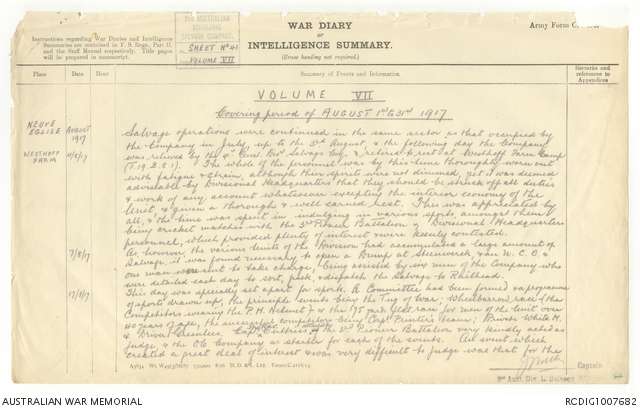 Instructions regarding War Diaries and Intelligence
Summaries are contained in F. S. Regs., Part II.
and the Staff Manual respectively. Title pages
will be prepared in manuscript.
SHEET No 41
VOLUME VII
WAR DIARY
or
INTELLIGENCE SUMMARY.
(Erase heading not required.)
Army Form
Place
Date
Hour
Summary of Events and Information
Remarks and
references to
Appendices
VOLUME VII
Covering period of AUGUST 1st to 31st 1917
NEUVE
EGLISE
AUGUST
1917
Salvage operations were continued in the same sector as that occupied by
the Company in July, up to the 3rd August, & the following day the Company
WESTHOF
FARM
was relieved by the Salvage Coy, & retired to rest at Westhoff Farm Camp
The whole of the personnel was by this time thoroughly worn out
with fatigue & strain, although their spirits were not dimmed, yet it was deemed
advisable by Divisional Headquarters that they should be struck off all duties
& work of any account whatsoever excepting the interior economy of the
Unit & given a thorough & well earned rest. This was appreciated by
all, & the time was spent in indulging in various sports, amongst them
being cricket matches with the 3rd Pioneer Battalion & Divisional Headquarters
personnel, which provided plenty of interest & were keenly contested.
As however the various units of the Division had accumulated a large amount of
7/8/17
Salvage, it was found necessary to open a Dump at Steenwerck, an N.C.O. &
one man were sent to take charge, being assisted by six men of the Company who
were detailed each day to sort, pack, & despatch the Salvage to Railhead.
This day was specially set apart for sport. A Committee had been formed & a programme
of sports drawn up, the principle events being the Tug of War; Wheelbarrow race (the
Competitors wearing the P.H. Helmet) & the 175 yards flat race for men of the Unit over
40 years of age, the successful competitors being Capt Hunter's team; Private White M.
& Driver of the 3rd Pioneer Battalion very kindly acted as
judge, & the OC Company as starter for each of the events. An event which
created a great deal of interest & was very difficult to judge was that for the
Captain